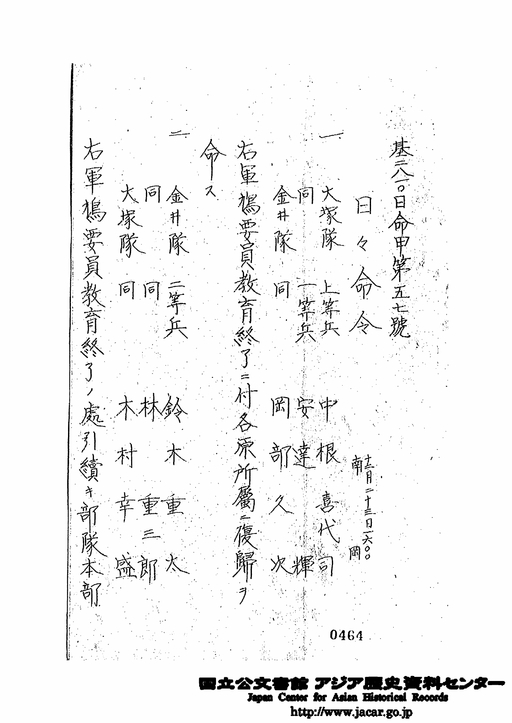 基二八一〇日命甲第五七號
日々命令
十二月二十三日一六〇〇
南岡
一 大塚隊 上等兵 中根喜代司
同 一等兵 安達輝
金井隊 同 岡部久次
右軍鳩要員教育終了ニ付各原所屬ニ復歸ヲ
命ス
二 金井隊 二等兵 鈴木重太
同 同 林重三郎
大塚隊 同 木村幸盛
右軍鳩要員教育終了ノ處引續キ部隊本部
0464
国立公文書館 アジア歴史資料センター
Japan Center for Asian Historical Records
http://www.jacar.go.jp